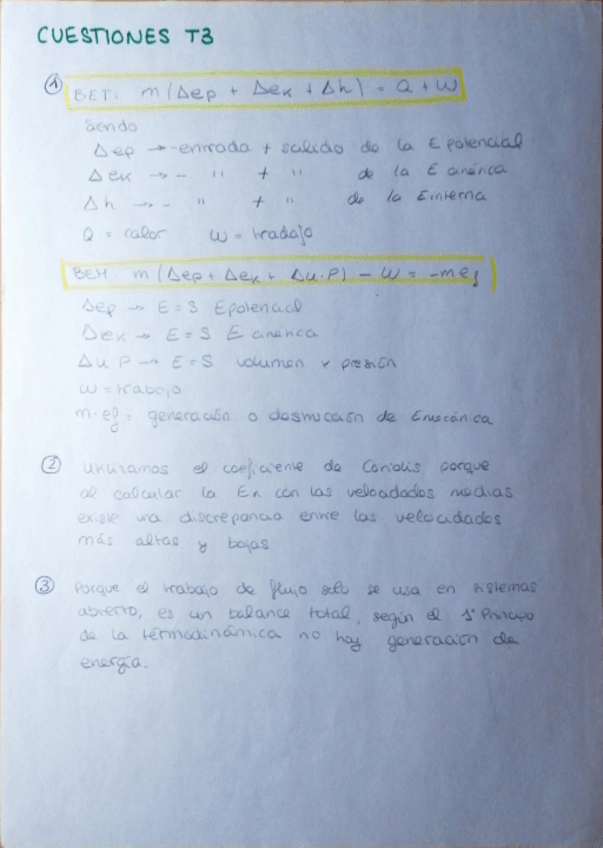 CUESTIONES T3
① BET: m (Δep + Δek + Δh) = Q + W
Siendo
Δep → -entrada + salida de la E potencial
Δek → - " + " de la E cinética
Δh → - " + " de la E interna
Q = calor W = trabajo
BEM m (Δep + Δek + Δu·P) - W = -m ef
Δep → E = S E potencial
Δek → E = S E cinética
Δu·P → E = S volumen x presión
W = trabajo
m·ef = generación o destrucción de E mecánica
② Utilizamos el coeficiente de Coriolis porque
al calcular la Ek con las velocidades medias
existe una discrepancia entre las velocidades
más altas y bajas
③ Porque el trabajo de flujo solo se usa en sistemas
abierto, es un balance total, según el 1º Principo
de la termodinámica no hay generación de
energía.